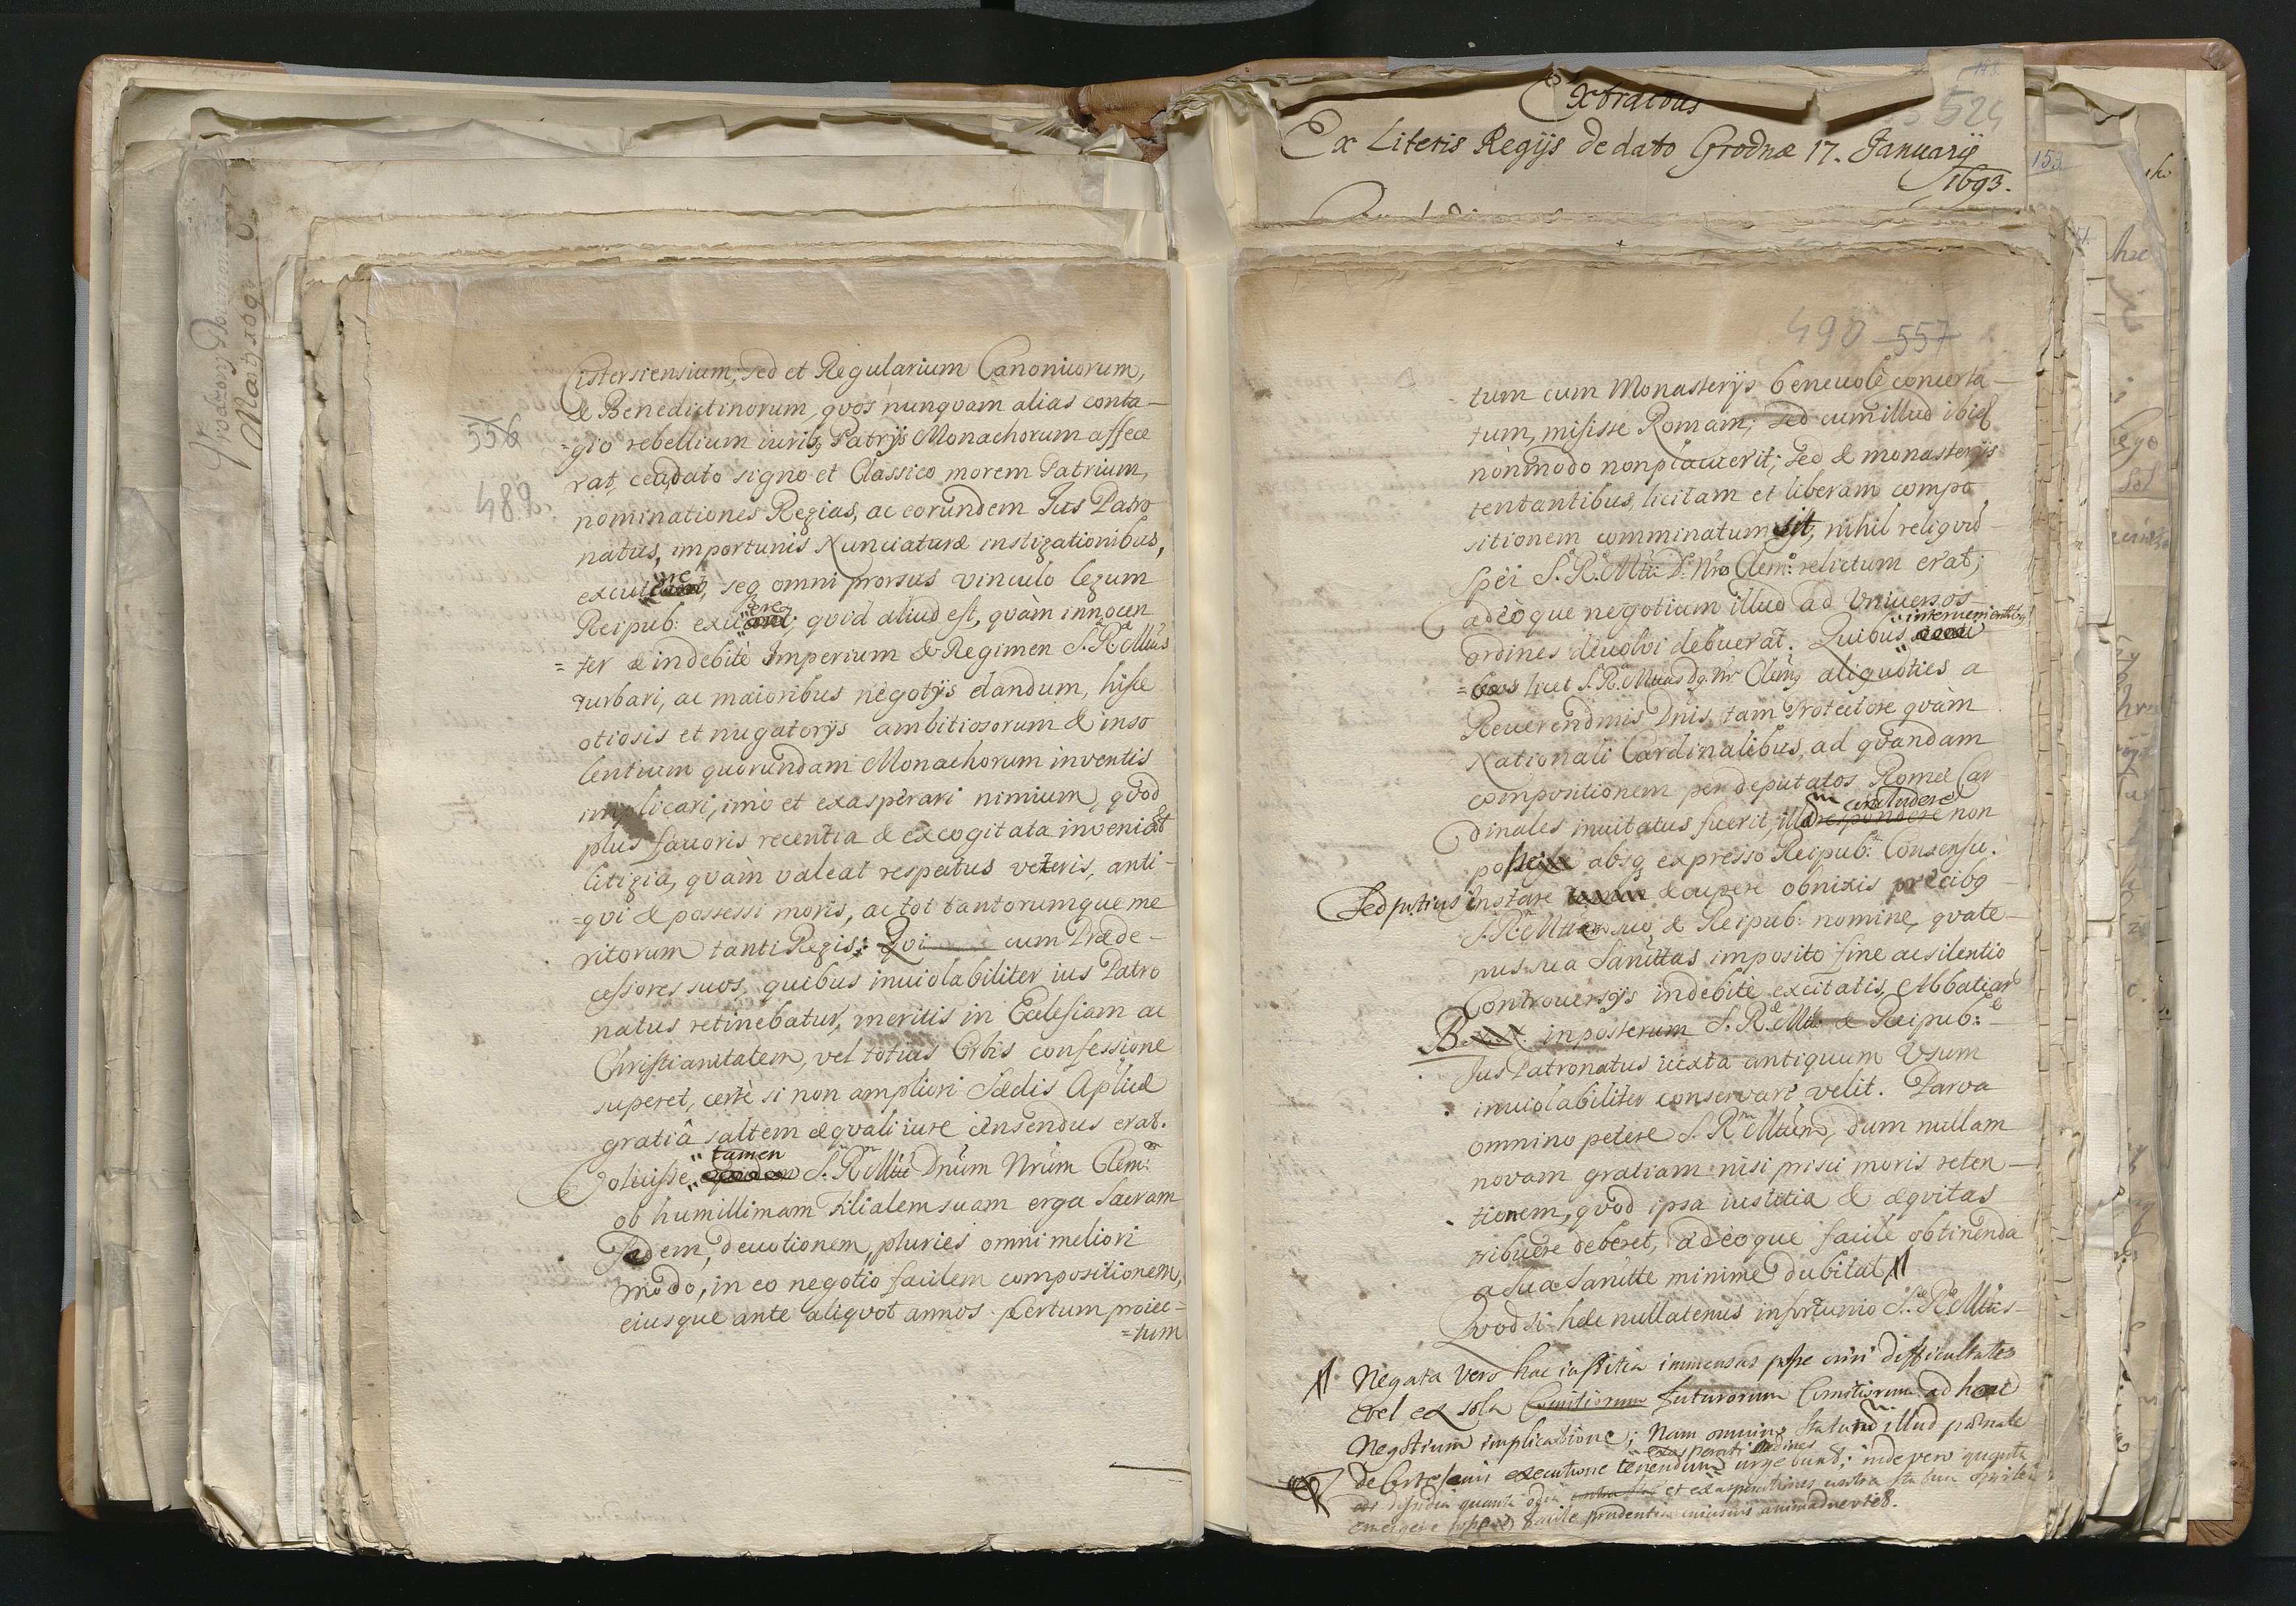 556
488
Cistersiensium, sed et Regularium Canonicorum,
& Benedictinorum, qvos nunqvam alias conta-
=gio rebellium iuribq Patrijs Monachorum affece
rat, ceu dato signo et Classico morem Patrium,
nominationes Regias, ac eorundem Ius Patro
natus, importunis Nunciaturæ instigationibus,
seq omni prorsus vinculo legum
Reipub: qvid aliud est, qvàm innocen
=ter & indebitè Imperium & Regimen S. R. Mttis
turbari, ac maioribus negotijs dandum, hisce
otiosis et nugatorijs ambitiosorum & inso
lentium quorundam Monachorum inventis
implicari, imò et exasperari nimium, qvod
plus favoris recentia & excogitata inveniat
litigia, qvàm valeat respectus veteris, anti-
=qvi & possessi moris, ac tot tantorumque me
ritorum tanti Regis: Qvi cum Præde-
cessores suos, quibus inuiolabiliter ius Patro
natus retinebatur, meritis in Ecclesiam ac
Christianitatem, vel totius Orbis confessione
superet, certè si non ampliori Sædis Aplicæ
gratiâ saltem æqvali iure censendus erat.
tamen
Voluisse S. R. Mtti Dnūm Nrūm Clem:
ob humillimam Filialem suam erga Sacram
Sedem, deuotionem, pluries omni meliori
modo, in eo negotio facilem compositionem,
eiusque ante aliqvot annos certum proiec-
=tum
Extractus
Ex Literis Regijs de dato Grodnæ 17. Januarij
1693.
524
153
490 557
tum cum Monasterijs beneuolè concerta-
tum, misisse Romam; sed cum illud ibiq
non modo non placuerit; sed & monasterijs
tentantibus, licitam et liberam compo
sitionem comminatum sit, nihil reliqvid-
spei S. R. Mtti D. Nro Clem: relictum erat;
adeòque negotium illud ad Vniuersos
intervenientibus
ordines deuolui debuerat. Quibus
licet S. R. Mttas D. Nr Clem aliqvoties a
Reuerendmis Dnis tam Protectore qvàm
Nationali Cardinalibus, ad qvandam
compositionem per deputatos Romæ Car
concludere
dinales inuitatus fuerit, illam respondere non
posse absq expresso Reipub: Consensu.
Sed potius instare & cupere obnixis precibq
S. R. Mttem suo, & Reipub: nomine, qvate-
nus sua Sanctitas imposito fine ac silentio
Controuersijs indebitè excitatis, Abbatiar
B. in posterum S. R. Mtti & Reipub:
Ius Patronatus iuxta antiquum Vsum
inuiolabiliter conservari velit. Parva
omnino petere S. R. Mttem, dum nullam
novam gratiam nisi prisci moris reten-
tionem, qvod ipsa iustitia & æqvitas
tribuere deberet, adeoque facilè obtinenda
a Sua Sanctitte minime dubitat
Qvod si hæc nullatenus infortunio S. R. Mttis-
Negata vero hac iustitia immensas posse oriri difficultates
vel ex sola Comitiorum futurorum Comitiorum ad hoc
Negotium implicatione; Nam omnino statutum illud pœnale
exasperati ordines
de executione tenendum urgebunt; inde vero quanta
dissidia quanta odia et exasperationes
emergere facile prudentia cuiusuis animaduertet.